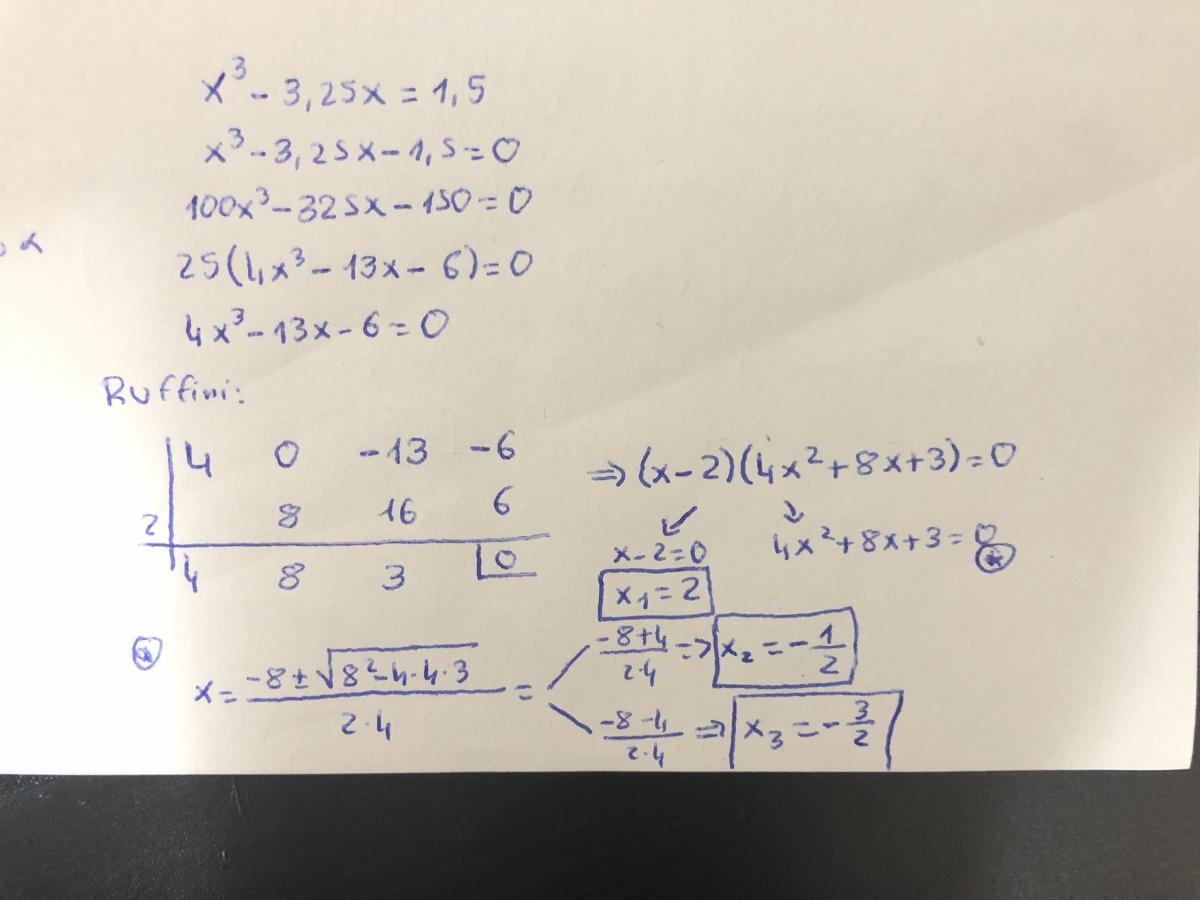 x³ - 3,25x = 1,5
x³ - 3,25x - 1,5 = 0
100x³ - 325x - 150 = 0
α
25(4x³ - 13x - 6) = 0
4x³ - 13x - 6 = 0
Ruffini:
4 0 -13 -6
2 8 16 6
4 8 3 0
⇒ (x-2)(4x² + 8x + 3) = 0
↙ ↘
x - 2 = 0 4x² + 8x + 3 = 0 ⊛
x₁ = 2
⊛ x = (-8 ± √(8² - 4·4·3))/(2·4) =
(-8+4)/(2·4) ⇒ x₂ = -1/2
(-8-4)/(2·4) ⇒ x₃ = -3/2